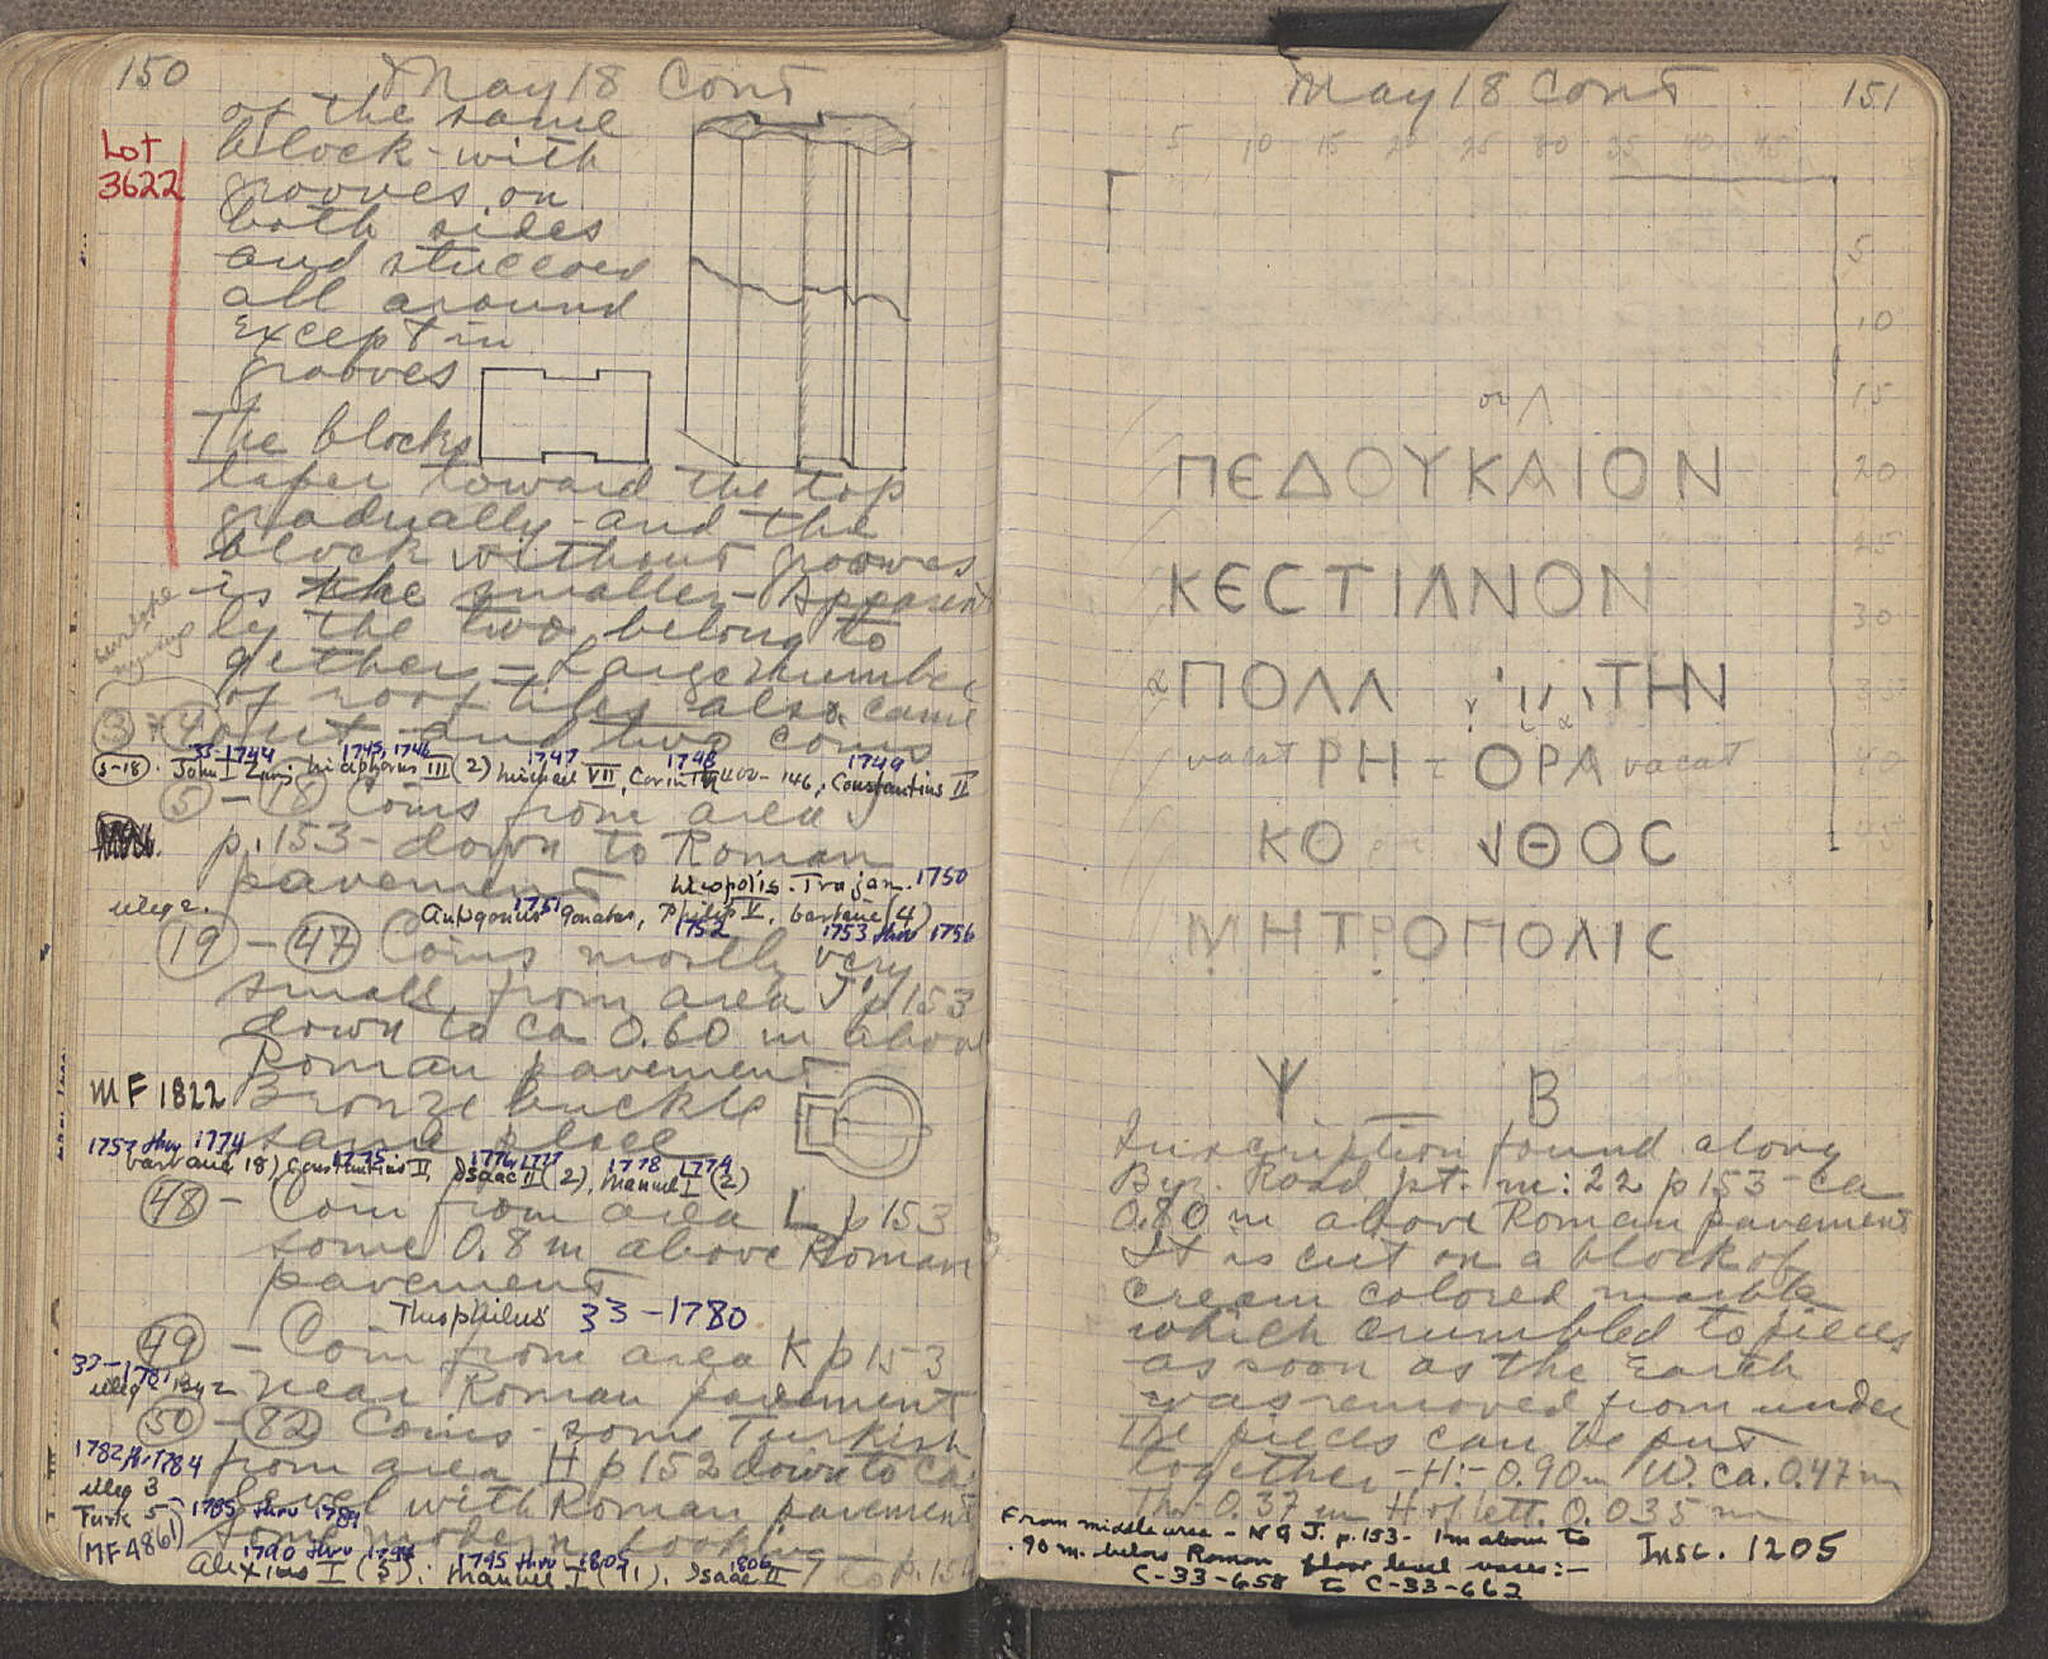 150 May 18 Cont
of the same
Lot
3622
block - with
grooves on
both sides
and stuccoed
all around
except in
grooves
The blocks
taper toward the top
gradually - and the
block without grooves
is the smaller - Apparent
ly the two belong to
gether - Large number
of roof tiles also came
3 + 4 out and two coins
33-1744 1745, 1746 1747 1748 1749
5-18. John I Zimi, Nicephorus III (2) Michael VII, Corinth 400-146, Constantius II
5 - 18 Coins from area J
p. 153 - down to Roman
pavement
Nicopolis. Trajan. 1750
illeg 2.
1751
Antigonus Gonatas, Philip V, barbaric (4)
1752 1753 thru 1756
19 - 47 Coins mostly very
small from area J p 153
down to ca 0.60 m above
Roman pavement
MF 1822 Bronze buckle
same place
1757 thru 1774 1775 1776, 1777 1778 1779
barbaric 18) Constantius II, Isaac II (2), Manuel I (2)
48 - Coin from area L p 153
some 0.8 m above Roman
pavement
Theophilus 33-1780
49 - Coin from area K p 153
33-1781
illeg Byz near Roman pavement
50 - 82 Coins - some Turkish
1782 thru 1784 from area H p 152 down to ca
illeg 3
level with Roman pavement
Turk 5 1785 thru 1789
(MF A861) some modern looking
1790 thru 1794 1795 thru 1805 1806
Alexius I (5), Manuel I (11), Isaac II
to p. 154
May 18 Cont 151
5 10 15 20 25 30 35 40 45
5
10
15
or Λ
ΠΕΔΟΥΚΑΙΟΝ 20
25
ΚΕCΤΙΑΝΟΝ
30
ΠΟΛΛ ΤΗΝ 35
vacat ΡΗΤΟΡΑ vacat 40
ΚΟ ΝΘΟC 45
ΜΗΤΡΟΠΟΛΙC
Ψ Β
Inscription found along
Byz. Road pt. m: 22 p 153 - ca
0.80 m above Roman pavement
It is cut on a block of
cream colored marble
which crumbled to pieces
as soon as the earth
was removed from under
The pieces can be put
together - H: - 0.90 m W. ca. 0.47 m
Th - 0.37 m H of lett. 0.035 m
From middle area - N of J. p. 153 - 1m above to
.90 m. below Roman floor level vases: -
C-33-658 to C-33-662
Insc. 1205